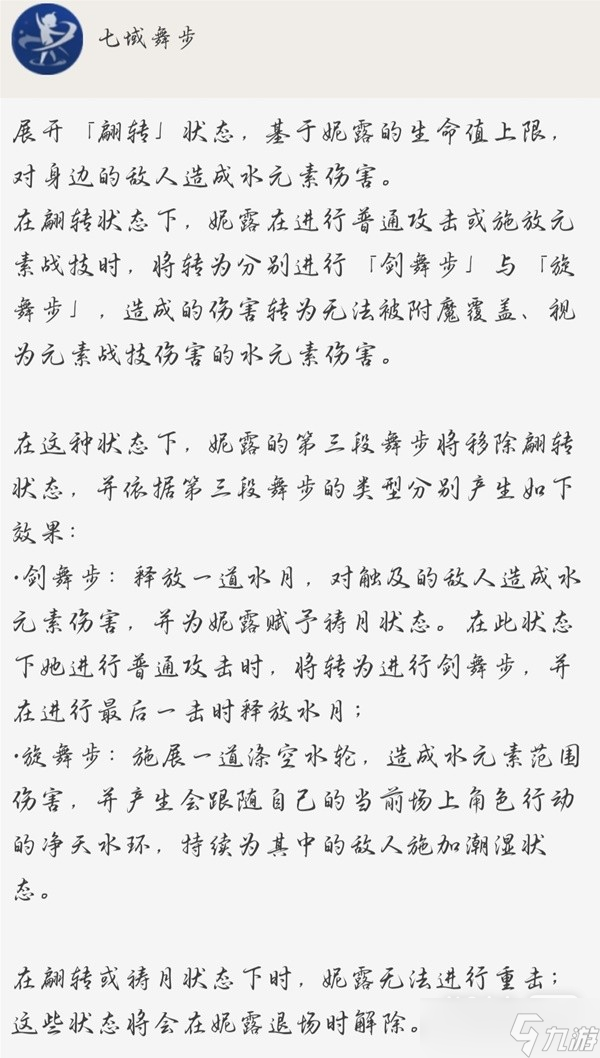 七域舞步
展开「翩转」状态，基于妮露的生命值上限，
对身边的敌人造成水元素伤害。
在翩转状态下，妮露在进行普通攻击或施放元
素战技时，将转为分别进行「剑舞步」与「旋
舞步」，造成的伤害转为无法被附魔覆盖、视
为元素战技伤害的水元素伤害。
在这种状态下，妮露的第三段舞步将移除翩转
状态，并依据第三段舞步的类型分别产生如下
效果：
·剑舞步：释放一道水月，对触及的敌人造成水
元素伤害，并为妮露赋予祷月状态。在此状态
下她进行普通攻击时，将转为进行剑舞步，并
在进行最后一击时释放水月；
·旋舞步：施展一道涤空水轮，造成水元素范围
伤害，并产生会跟随自己的当前场上角色行动
的净天水环，持续为其中的敌人施加潮湿状
态。
在翩转或祷月状态下时，妮露无法进行重击；
这些状态将会在妮露退场时解除。
九游